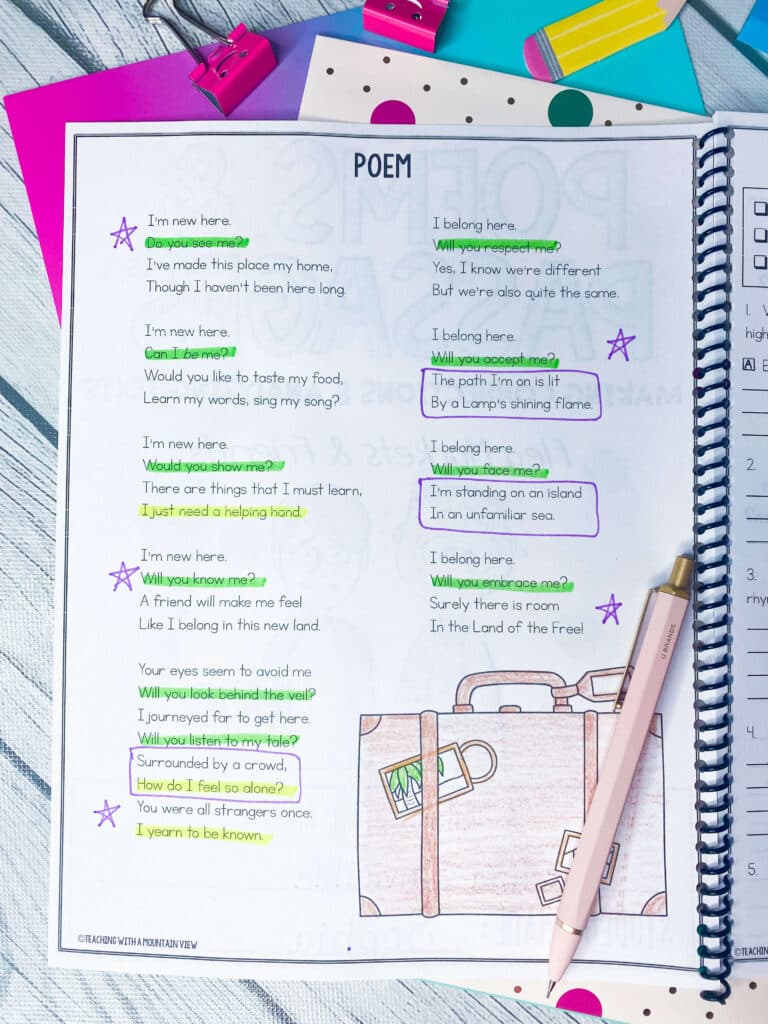 POEM
I'm new here.
Do you see me?
I've made this place my home,
Though I haven't been here long.
I'm new here.
Can I be me?
Would you like to taste my food,
Learn my words, sing my song?
I'm new here.
Would you show me?
There are things that I must learn,
I just need a helping hand.
I'm new here.
Will you know me?
A friend will make me feel
Like I belong in this new land.
Your eyes seem to avoid me
Will you look behind the veil?
I journeyed far to get here.
Will you listen to my tale?
Surrounded by a crowd,
How do I feel so alone?
You were all strangers once.
I yearn to be known.
I belong here.
Will you respect me?
Yes, I know we're different
But we're also quite the same.
I belong here.
Will you accept me?
The path I'm on is lit
By a Lamp's shining flame.
I belong here.
Will you face me?
I'm standing on an island
In an unfamiliar sea.
I belong here.
Will you embrace me?
Surely there is room
In the Land of the Free!
©TEACHING WITH A MOUNTAIN VIEW
U BRANDS
1.
2.
3.
4.
5.